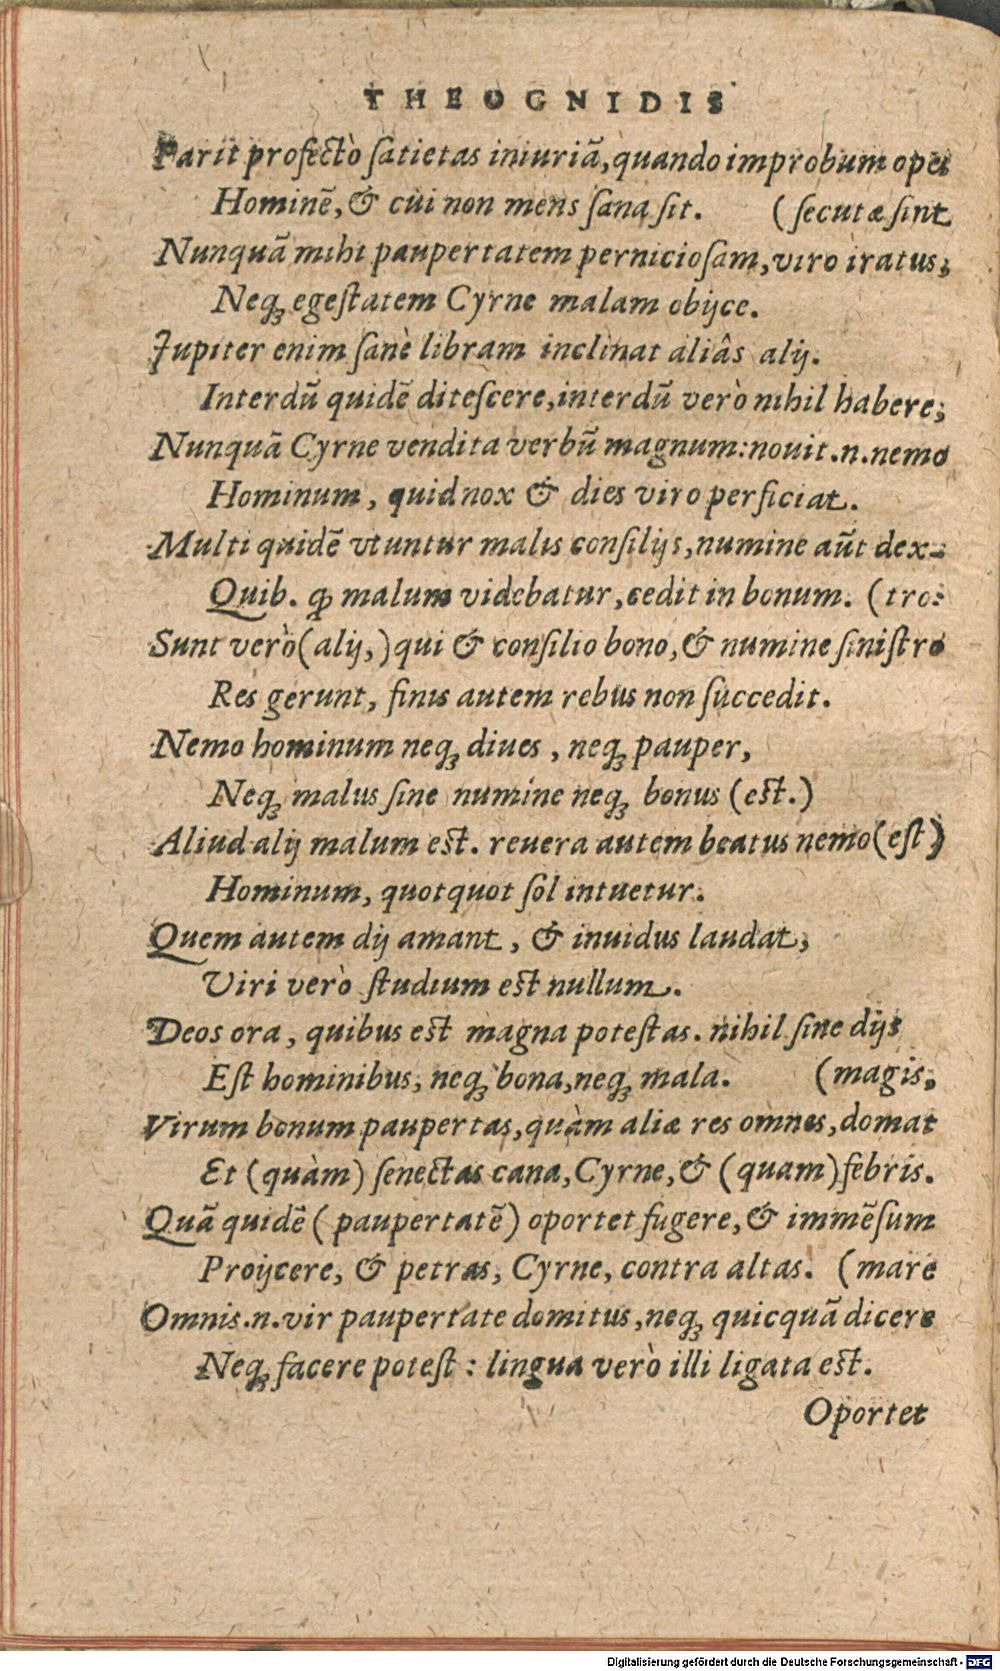 THEOGNIDIS
Parit profectò ſatietas iniuriã, quando improbum opes
Hominẽ, & cui non mens ſana ſit. (ſecutæ ſint
Nunquã mihi paupertatem pernicioſam, viro iratus,
Neqꝫ egeſtatem Cyrne malam obijce.
Jupiter enim ſanè libram inclinat aliâs alij.
Interdũ quidẽ diteſcere, interdũ verò nihil habere;
Nunquã Cyrne vendita verbũ magnum: nouit .n. nemo
Hominum, quid nox & dies viro perficiat.
Multi quidẽ vtuntur malis conſilijs, numine aũt dex-
Quib. ꝙ malum videbatur, cedit in bonum. (tro:
Sunt verò (alij,) qui & conſilio bono, & numine ſiniſtro
Res gerunt, finis autem rebus non ſuccedit.
Nemo hominum neqꝫ diues, neqꝫ pauper,
Neqꝫ malus ſine numine neqꝫ bonus (eſt.)
Aliud alij malum eſt. reuera autem beatus nemo (eſt)
Hominum, quotquot ſol intuetur.
Quem autem dij amant, & inuidus laudat,
Viri verò ſtudium eſt nullum.
Deos ora, quibus eſt magna poteſtas. nihil ſine dijs
Eſt hominibus, neqꝫ bona, neqꝫ mala. (magis,
Virum bonum paupertas, quàm aliæ res omnes, domat
Et (quàm) ſenectas cana, Cyrne, & (quam) febris.
Quã quidẽ (paupertatẽ) oportet fugere, & immẽſum
Proijcere, & petras, Cyrne, contra altas. (mare
Omnis .n. vir paupertate domitus, neqꝫ quicquã dicere
Neqꝫ facere poteſt: lingua verò illi ligata eſt.
Oportet
Digitalisierung gefördert durch die Deutsche Forschungsgemeinschaft - DFG